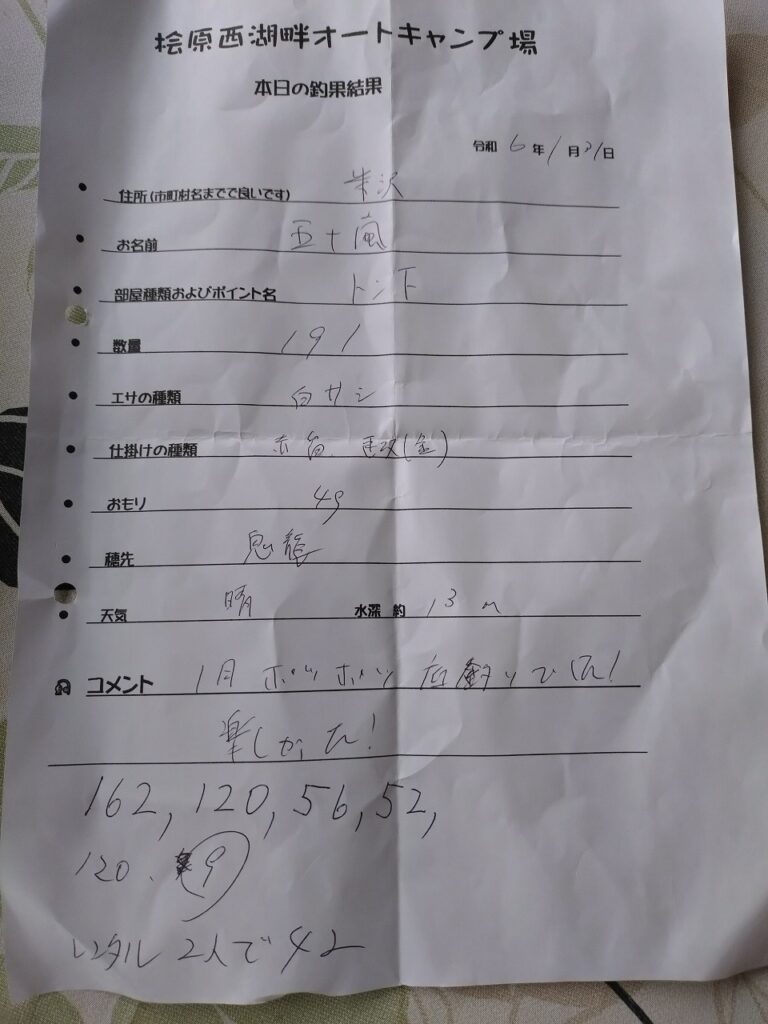 桧原西湖畔オートキャンプ場
本日の釣果結果
令和 6年 1月 31日
住所(市町村名までで良いです) 米沢
お名前 五十嵐
部屋種類およびポイント名 トン下
数量 191
エサの種類 白サシ
仕掛けの種類 (金)
おもり 4g
穂先 鬼龍
天気 晴 水深 約 13m
コメント 1月 ポツポツ 釣りでした!
楽しかった!
162, 120, 56, 52,
120. 9
レンタル 2人で42